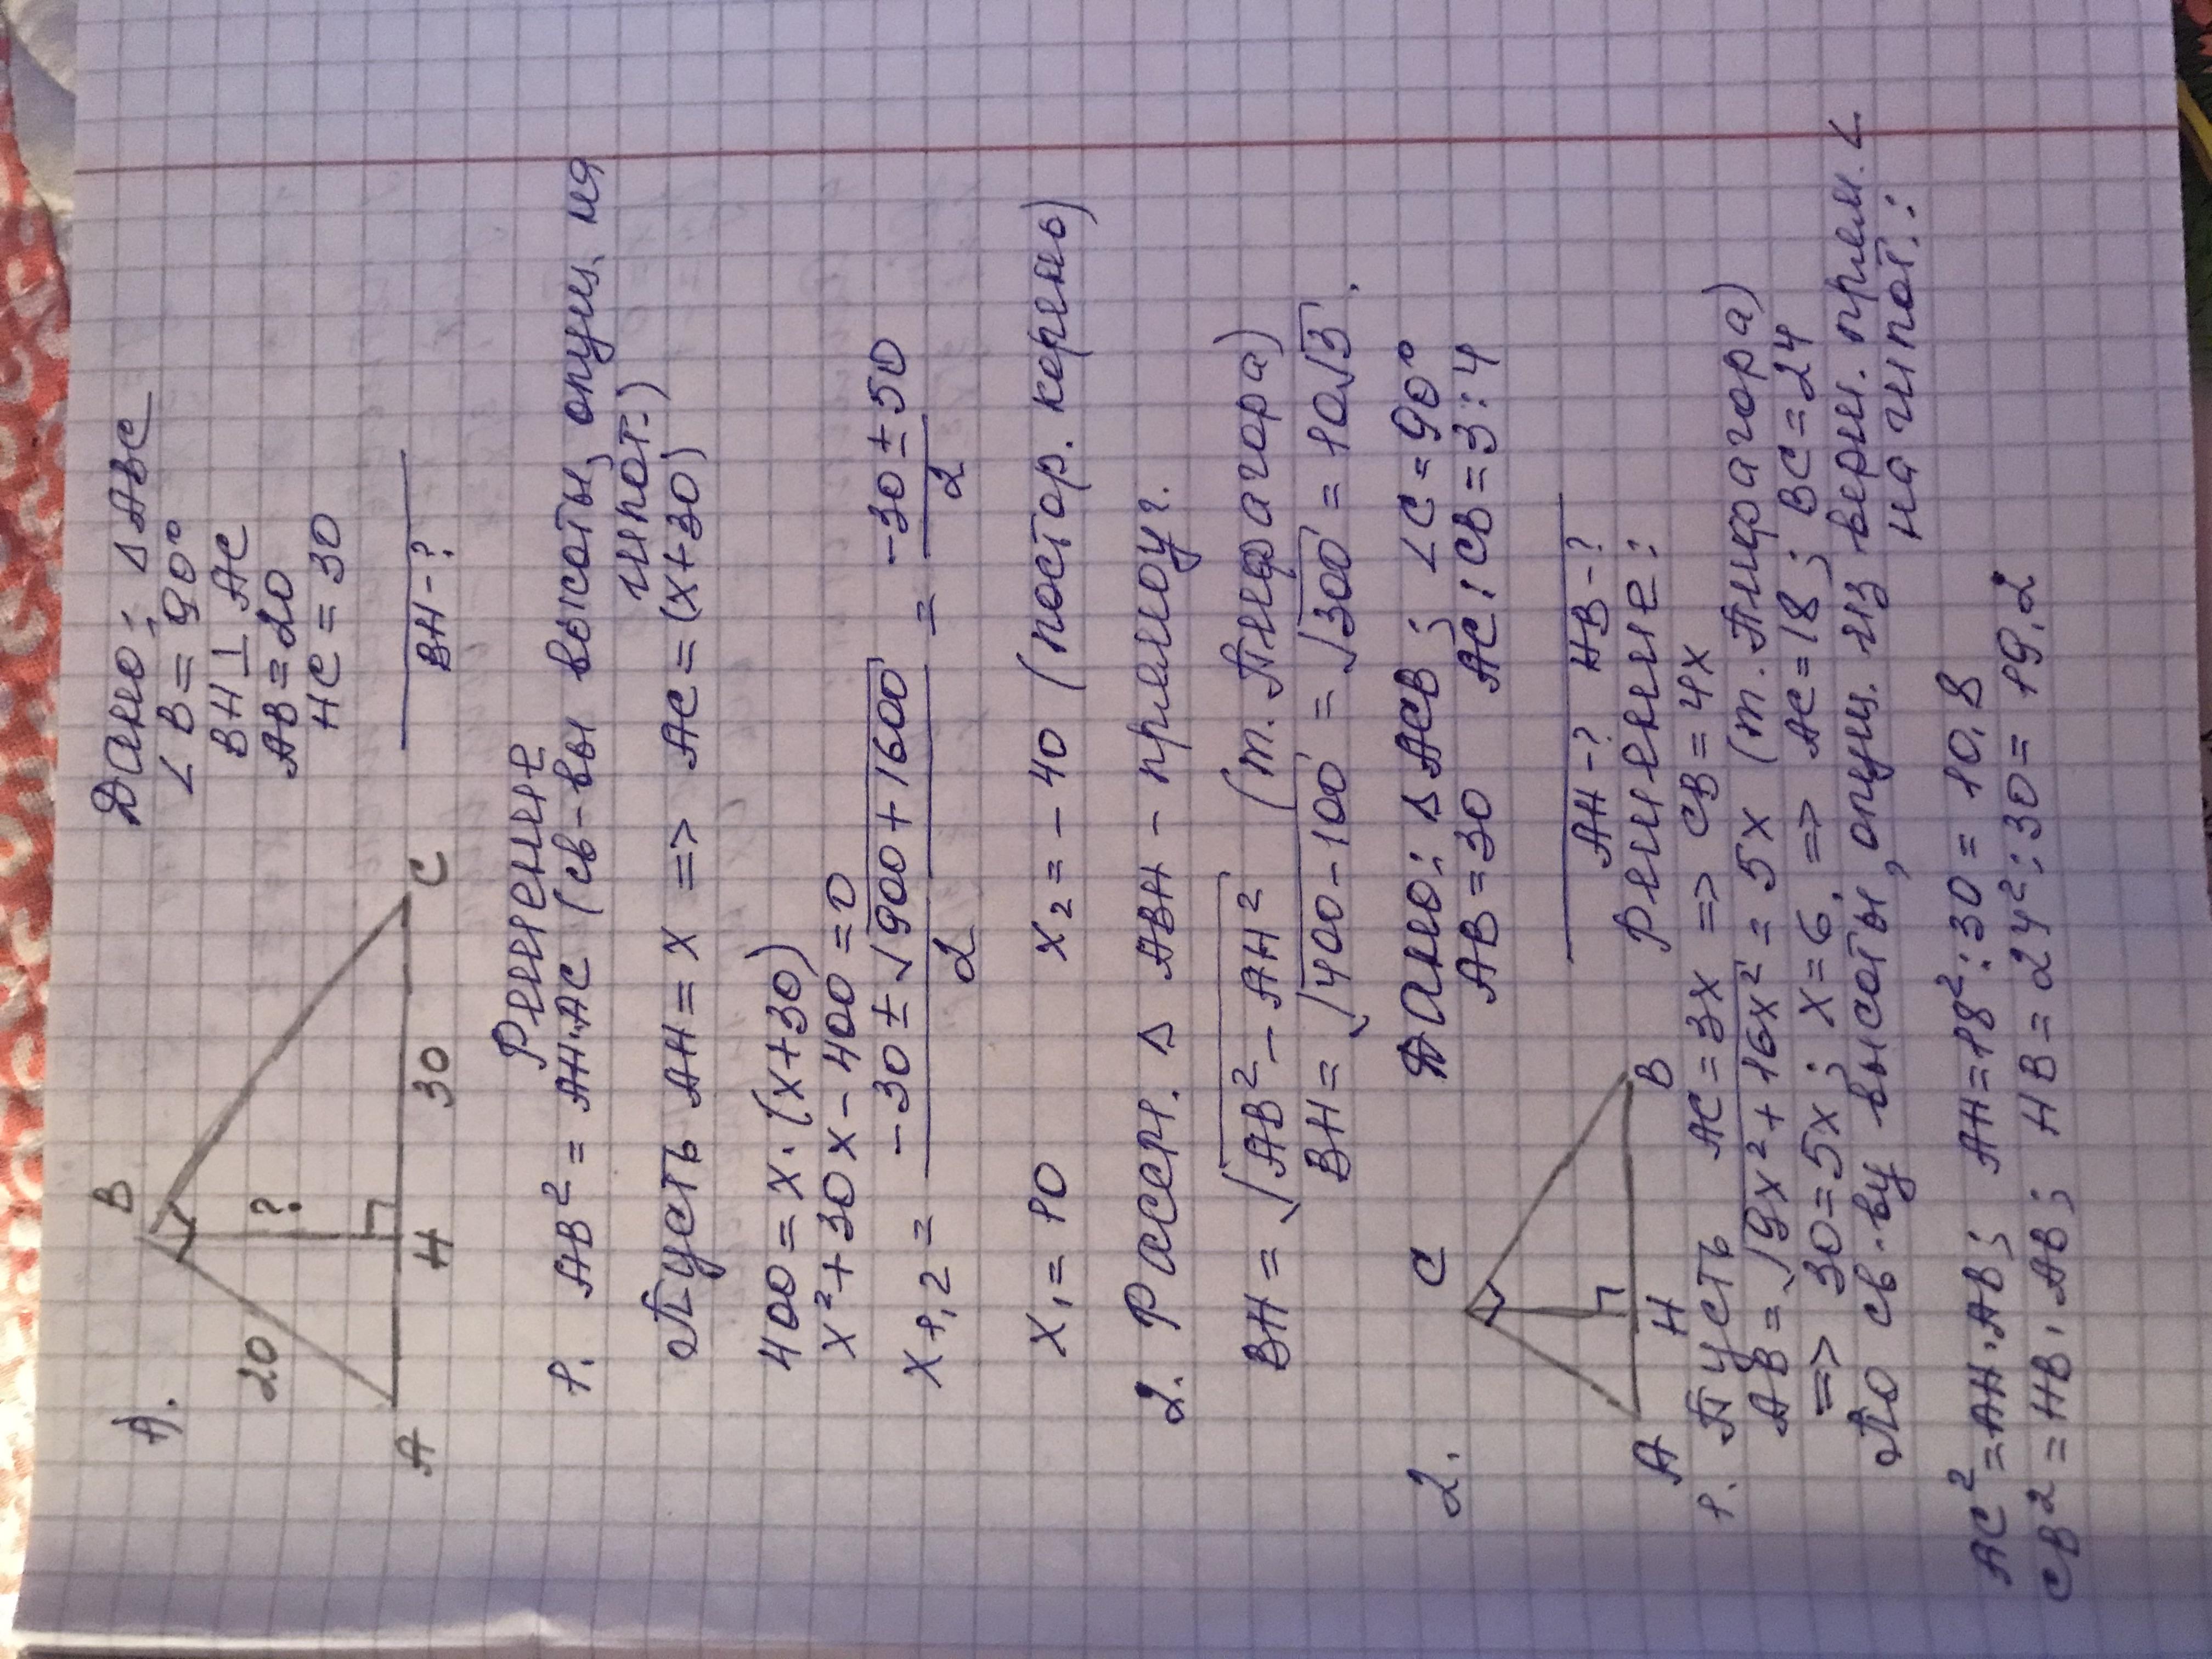 1).
B
20
?
30
A
H
C
Дано: △ABC
∠B = 90°
BH ⊥ AC
AB = 20
HC = 30
BH - ?
Решение
1. AB² = AH·AC (св-вы высоты, опущ. на
гипот.)
Пусть AH = x => AC = (x+30)
400 = x·(x+30)
x² + 30x - 400 = 0
x₁,₂ = (-30 ± √(900+1600))/2 = (-30 ± 50)/2
x₁ = 10 x₂ = -40 (постор. корень)
2. Рассм. △ ABH - прямоуг.
BH = √(AB² - AH²) (т. Пифагора)
BH = √(400-100) = √300 = 10√3.
2.
C
A
H
B
Дано: △ACB; ∠C = 90°
AB = 30 AC : CB = 3:4
AH - ? HB - ?
Решение:
1. Пусть AC = 3x => CB = 4x
AB = √(9x² + 16x²) = 5x (т. Пифагора)
=> 30 = 5x; x = 6 => AC = 18; BC = 24
По св-ву высоты, опущ. из верш. прям. ∠
на гипот.:
AC² = AH·AB; AH = 18² : 30 = 10,8
CB² = HB·AB; HB = 24² : 30 = 19,2